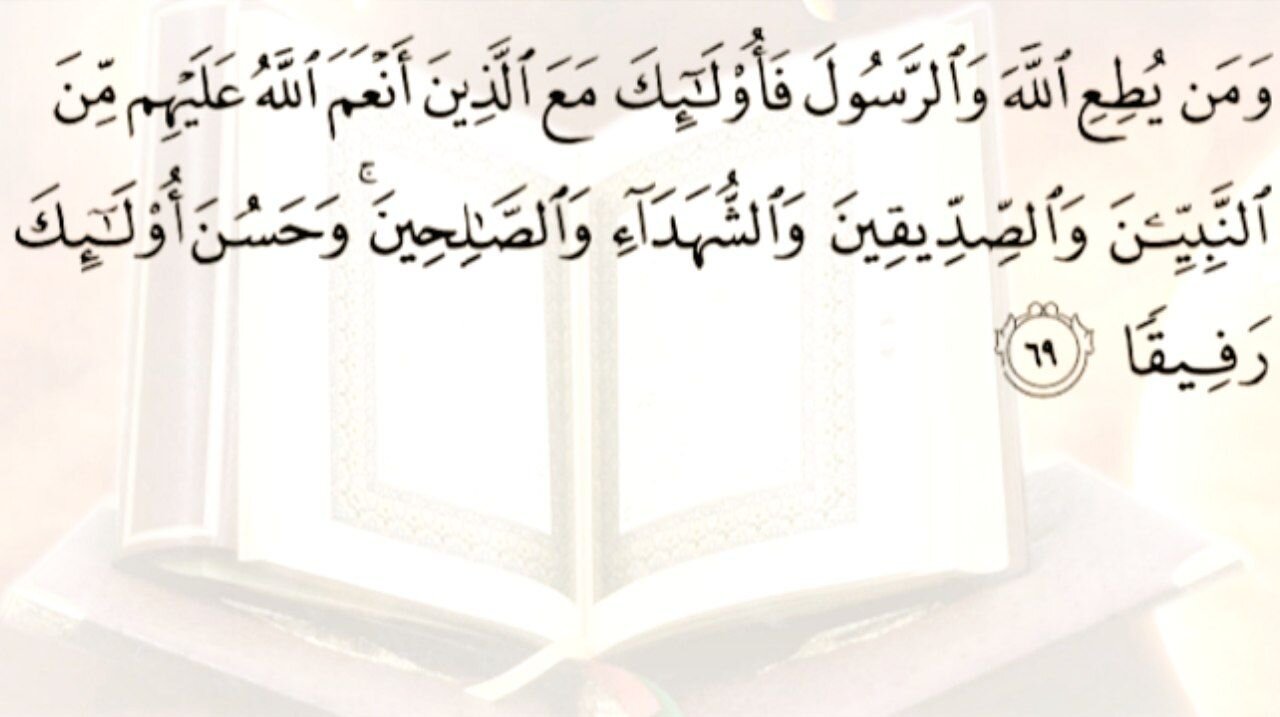 وَمَن يُطِعِ ٱللَّهَ وَٱلرَّسُولَ فَأُو۟لَـٰٓئِكَ مَعَ ٱلَّذِينَ أَنْعَمَ ٱللَّهُ عَلَيْهِم مِّنَ
ٱلنَّبِيِّـۧنَ وَٱلصِّدِّيقِينَ وَٱلشُّهَدَآءِ وَٱلصَّـٰلِحِينَ ۚ وَحَسُنَ أُو۟لَـٰٓئِكَ
رَفِيقًا ٦٩